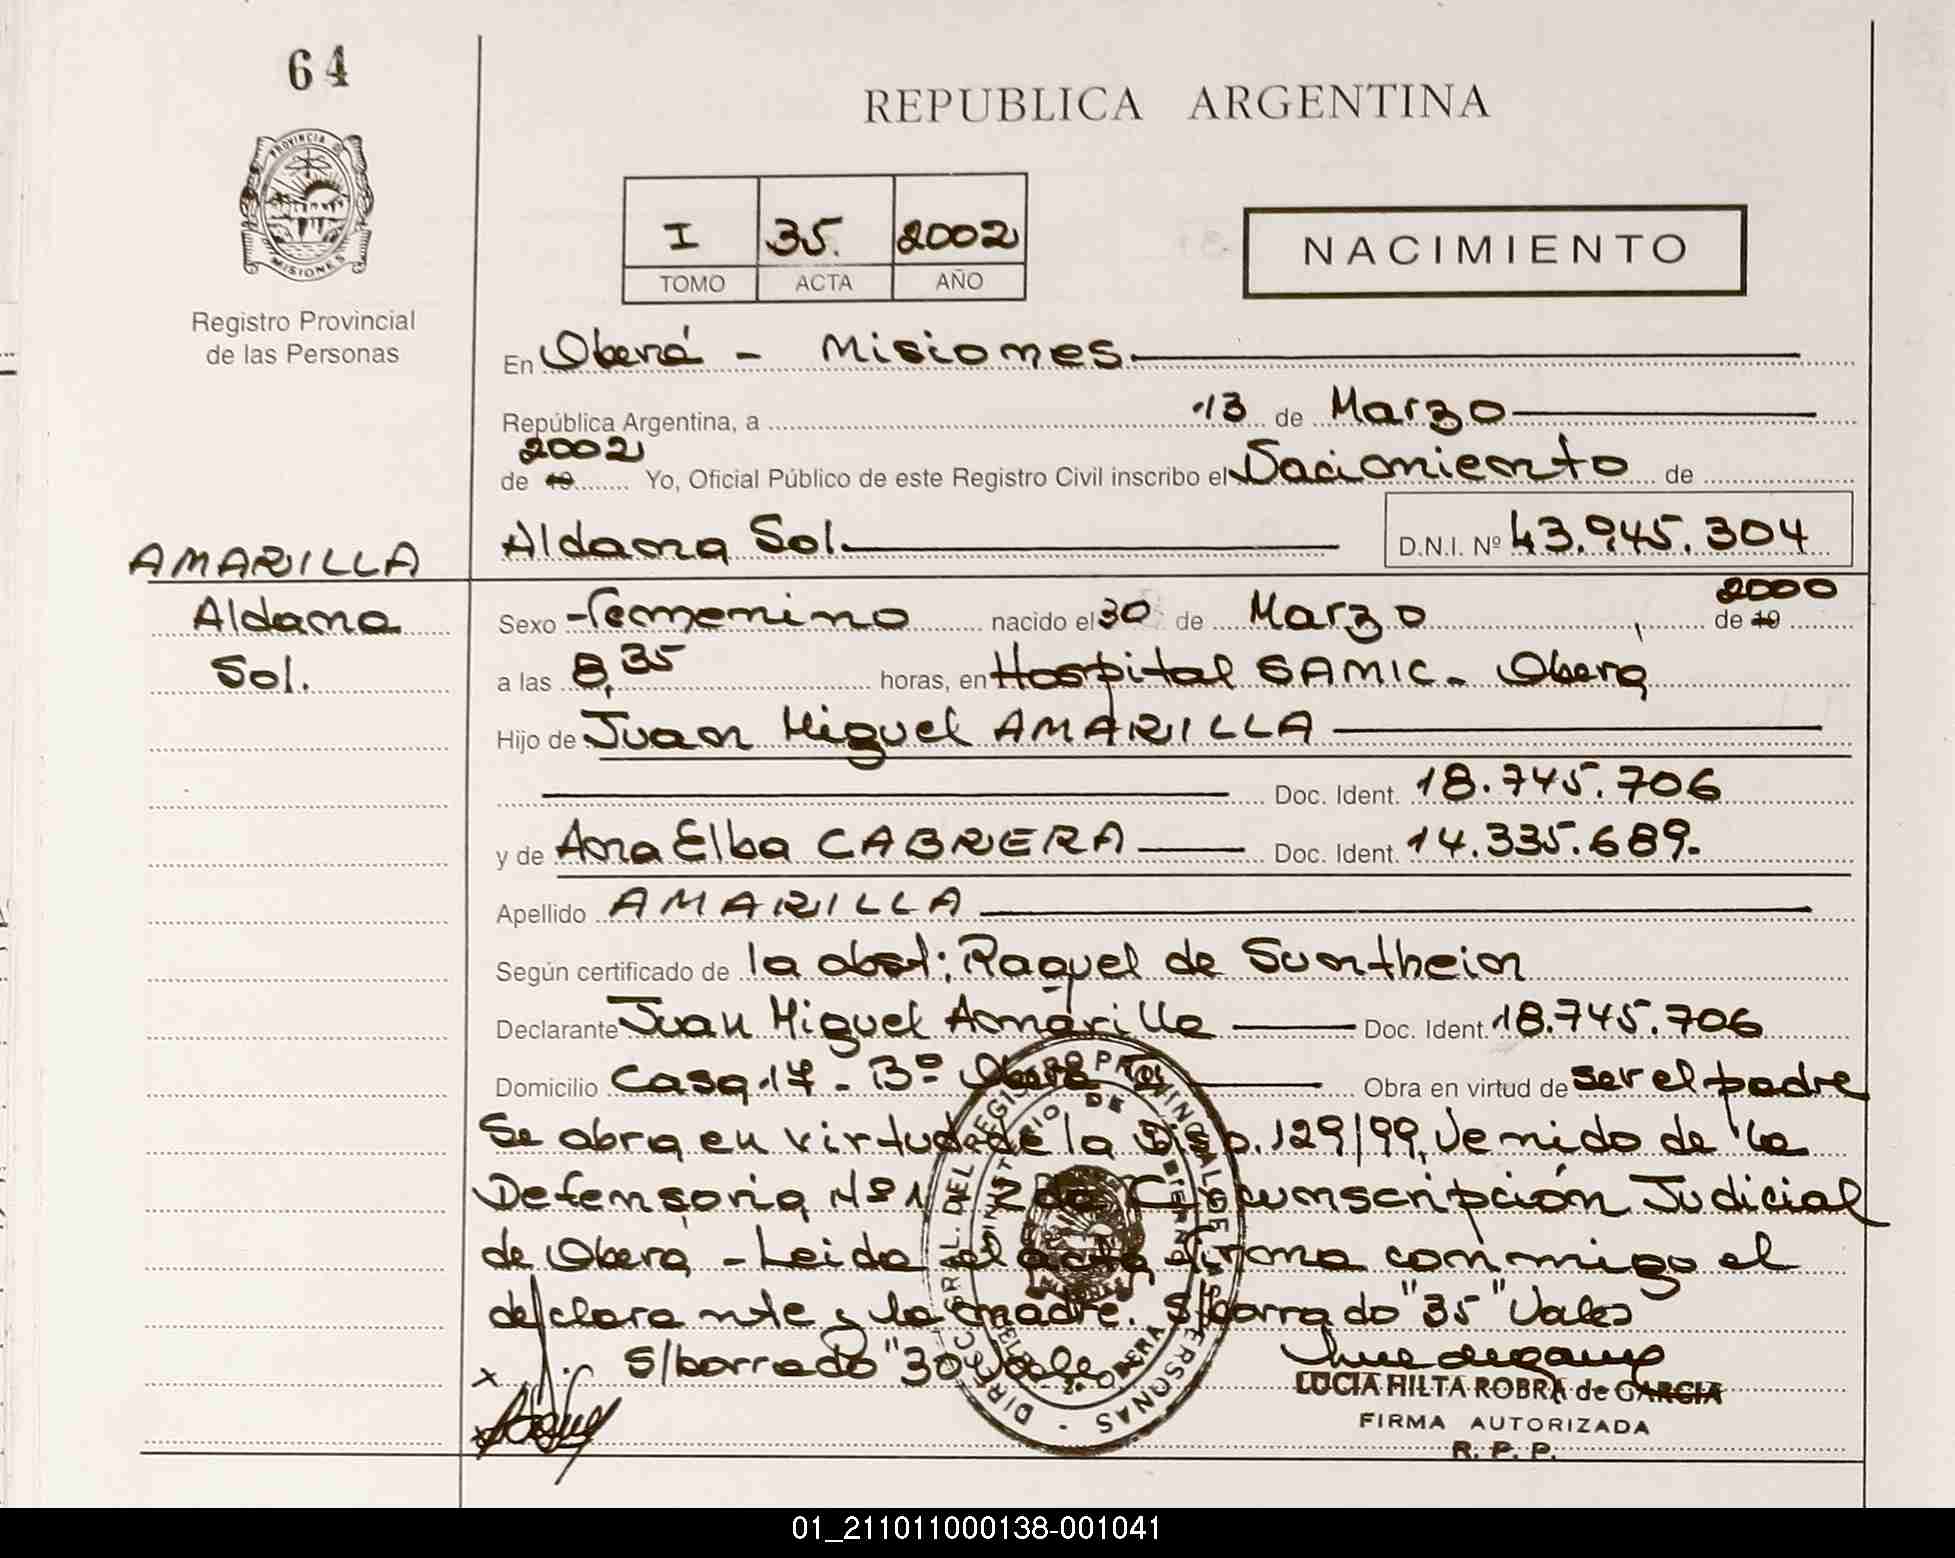 64
REPUBLICA ARGENTINA
PROVINCIA DE
MISIONES
Registro Provincial
de las Personas
I 35. 2002
TOMO ACTA AÑO
NACIMIENTO
En Oberá - Misiones
República Argentina, a 13 de Marzo
2002
de 19 Yo, Oficial Público de este Registro Civil inscribo el Nacimiento de
Aldana Sol. D.N.I. Nº 43.945.304
AMARILLA
Aldana
Sol.
Sexo Femenino nacido el 30 de Marzo, de 19 2000
a las 8,35 horas, en Hospital SAMIC - Obera
Hijo de Juan Miguel AMARILLA
Doc. Ident. 18.745.706
y de Ana Elba CABRERA Doc. Ident. 14.335.689.
Apellido AMARILLA
Según certificado de la obst; Raquel de Suntheim
Declarante Juan Miguel Amarilla Doc. Ident. 18.745.706
Domicilio Casa 17 - Bº Obera Obra en virtud de ser el padre
Se obra en virtud de la Disp. 129/99, Venido de la
Defensoria Nº 1 2da Circunscripción Judicial
de Obera - Leida el acta firma conmigo el
declarante y la madre. S/borrado "35" Vale
S/borrado "30" Vale
LUCIA HILTA ROBRA de GARCIA
FIRMA AUTORIZADA
R. P. P.
01_211011000138-001041